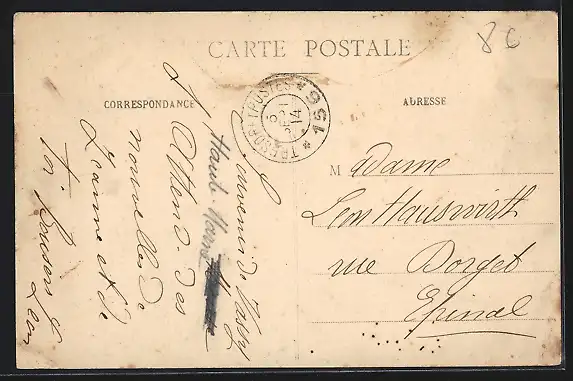 CARTE POSTALE
86
CORRESPONDANCE
ADRESSE
TRESOR ET POSTES * 156 *
5
14
Souvenir de Vassy
Haute Marne
J'Attend des
nouvelles de
Jeanne et de
toi Baisers
Leon
Madame
Leon Hauswirth
rue Dorget
Epinal